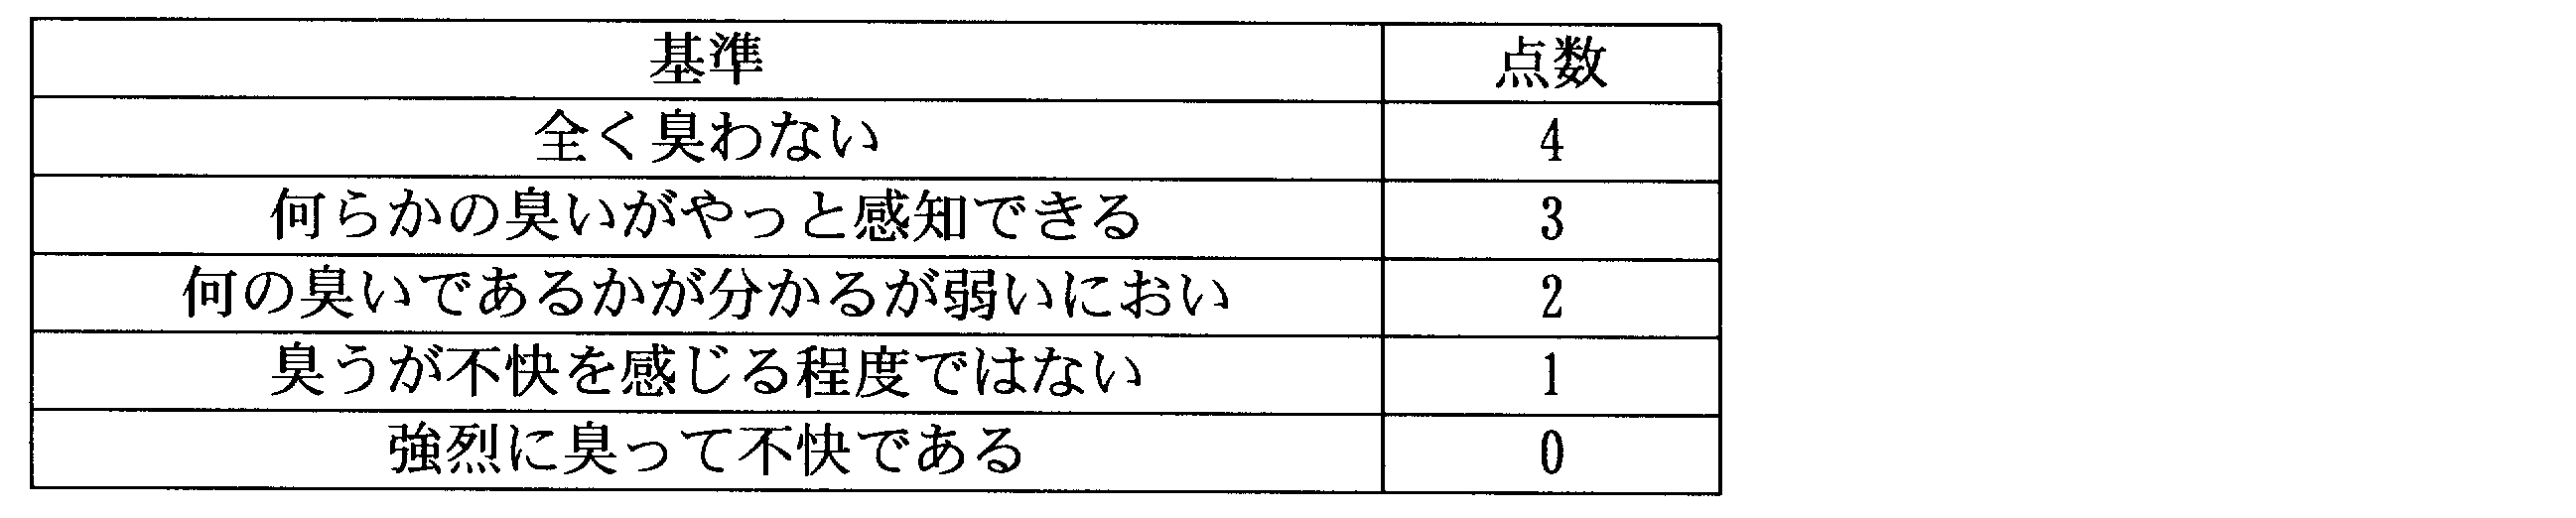 基準 点数
全く臭わない 4
何らかの臭いがやっと感知できる 3
何の臭いであるかが分かるが弱いにおい 2
臭うが不快を感じる程度ではない 1
強烈に臭って不快である 0